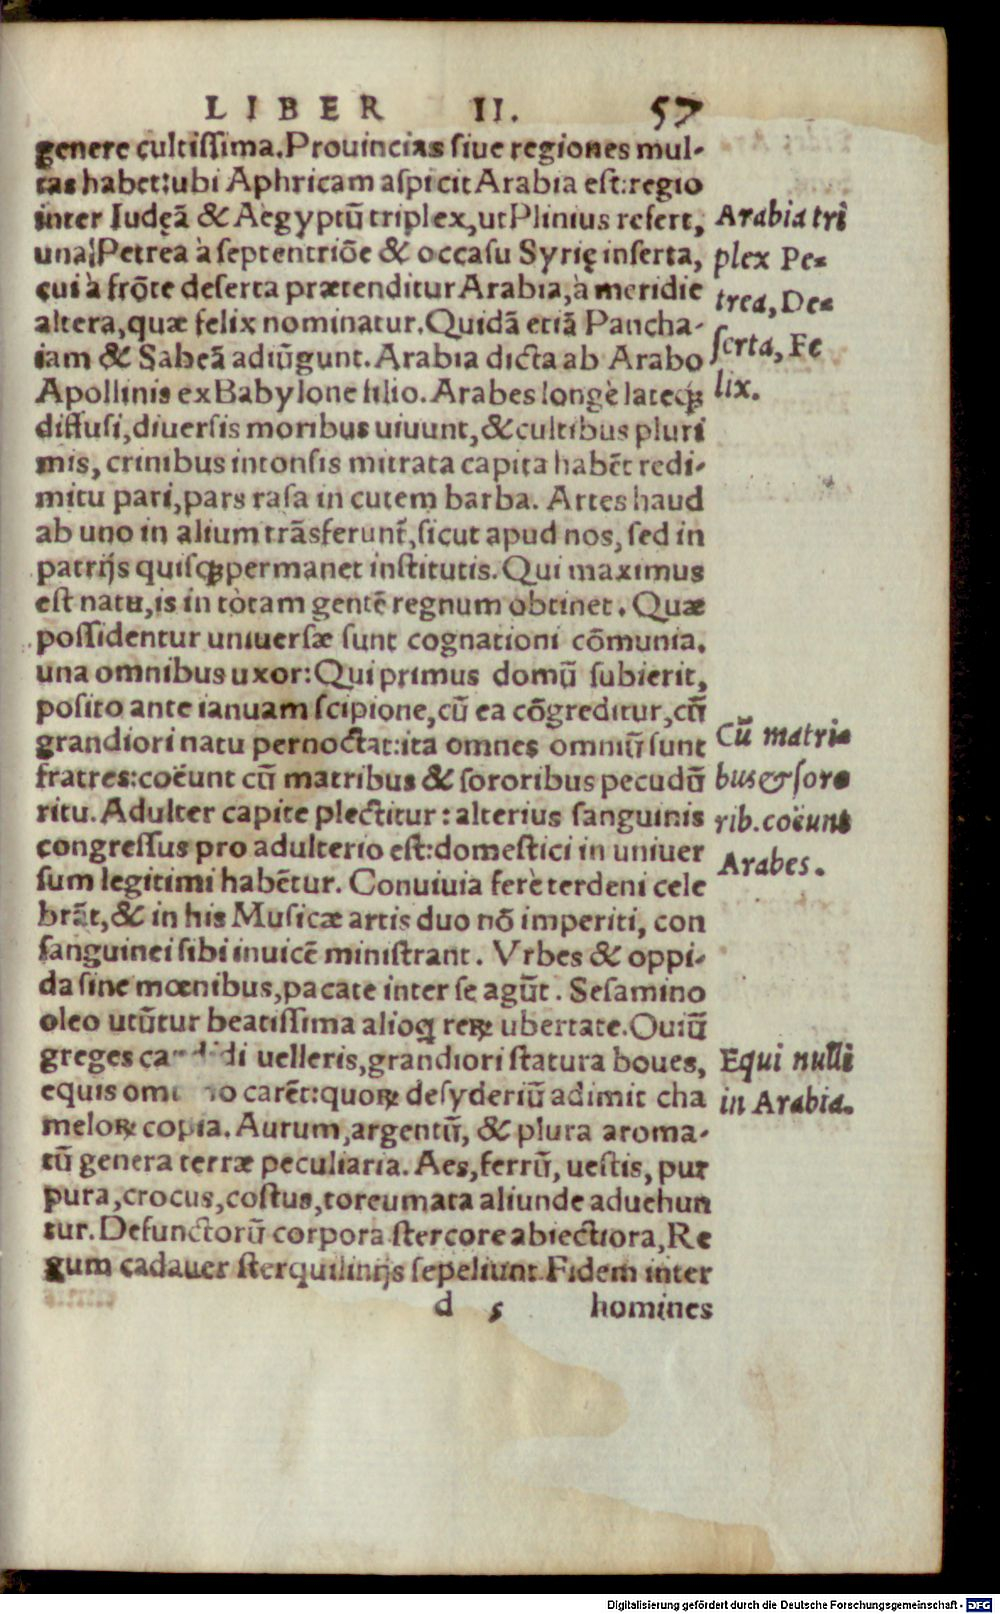 LIBER II. 57
genere cultissima. Prouincias siue regiones mul-
tas habet: ubi Aphricam aspicit Arabia est: regio
inter Iudęã & Aegyptũ triplex, ut Plinius refert,
una: Petrea à septentriõe & occasu Syrię inserta,
cui à frõte deserta prætenditur Arabia, à meridie
altera, quæ felix nominatur. Quidã etiã Pancha-
iam & Sabeã adiũgunt. Arabia dicta ab Arabo
Apollinis ex Babylone filio. Arabes longè lateqꝫ
diffusi, diuersis moribus uiuunt, & cultibus pluri
mis, crinibus intonsis mitrata capita habẽt redi-
mitu pari, pars rasa in cutem barba. Artes haud
ab uno in alium trãsferunt̃, sicut apud nos, sed in
patrijs quisqꝫ permanet institutis. Qui maximus
est natu, is in totam gentẽ regnum obtinet. Quæ
possidentur uniuersæ sunt cognationi cõmunia.
una omnibus uxor: Qui primus domũ subierit,
posito ante ianuam scipione, cũ ea cõgreditur, cũ
grandiori natu pernoctat: ita omnes omniũ sunt
fratres: coëunt cũ matribus & sororibus pecudũ
ritu. Adulter capite plectitur: alterius sanguinis
congressus pro adulterio est: domestici in uniuer
sum legitimi habẽtur. Conuiuia ferè terdeni cele
brãt, & in his Musicæ artis duo nõ imperiti, con
sanguinei sibi inuicẽ ministrant. Vrbes & oppi-
da sine mœnibus, pacate inter se agũt. Sesamino
oleo utũtur beatissima alioq̃ reꝝ ubertate. Ouiũ
greges candidi uelleris, grandiori statura boues,
equis omnino carẽt: quoꝝ desyderiũ adimit cha
meloꝝ copia. Aurum, argentũ, & plura aroma-
tũ genera terræ peculiaria. Aes, ferrũ, uestis, pur
pura, crocus, costus, toreumata aliunde aduehun
tur. Defunctorũ corpora stercore abiectiora, Re
gum cadauer sterquilinijs sepeliunt. Fidem inter
d 5 homines
Arabia tri
plex Pe-
trea, De-
serta, Fe
lix.
Cũ matri-
bus & soro
rib. coëunt
Arabes.
Equi nulli
in Arabia.
Digitalisierung gefördert durch die Deutsche Forschungsgemeinschaft - DFG